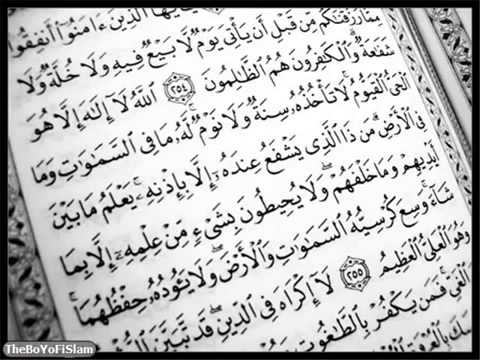 يَٰٓأَيُّهَا ٱلَّذِينَ ءَامَنُوٓا۟ أَنفِقُوا۟
مِمَّا رَزَقْنَٰكُم مِّن قَبْلِ أَن يَأْتِىَ يَوْمٌ لَّا بَيْعٌ فِيهِ وَلَا خُلَّةٌ وَلَا
شَفَٰعَةٌ وَٱلْكَٰفِرُونَ هُمُ ٱلظَّٰلِمُونَ ٢٥٤ ٱللَّهُ لَآ إِلَٰهَ إِلَّا هُوَ
ٱلْحَىُّ ٱلْقَيُّومُ لَا تَأْخُذُهُۥ سِنَةٌ وَلَا نَوْمٌ لَّهُۥ مَا فِى ٱلسَّمَٰوَٰتِ وَمَا
فِى ٱلْأَرْضِ مَن ذَا ٱلَّذِى يَشْفَعُ عِندَهُۥٓ إِلَّا بِإِذْنِهِۦ يَعْلَمُ مَا بَيْنَ
أَيْدِيهِمْ وَمَا خَلْفَهُمْ وَلَا يُحِيطُونَ بِشَىْءٍ مِّنْ عِلْمِهِۦٓ إِلَّا بِمَا
شَآءَ وَسِعَ كُرْسِيُّهُ ٱلسَّمَٰوَٰتِ وَٱلْأَرْضَ وَلَا يَـُٔودُهُۥ حِفْظُهُمَا
وَهُوَ ٱلْعَلِىُّ ٱلْعَظِيمُ ٢٥٥ لَآ إِكْرَاهَ فِى ٱلدِّينِ قَد تَّبَيَّنَ
ٱلْغَىِّ فَمَن يَكْفُرْ بِٱلطَّٰغُوتِ
TheBoYoFiSlam